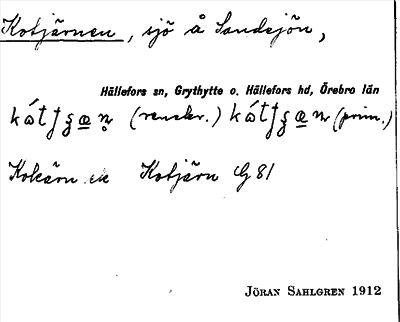 Kotjärnen, sjö å Sandsjön,
Hällefors sn, Grythytte o. Hällefors hd, Örebro län
(renskr.) (prim.)
Kotjärn G 81
JÖRAN SAHLGREN 1912